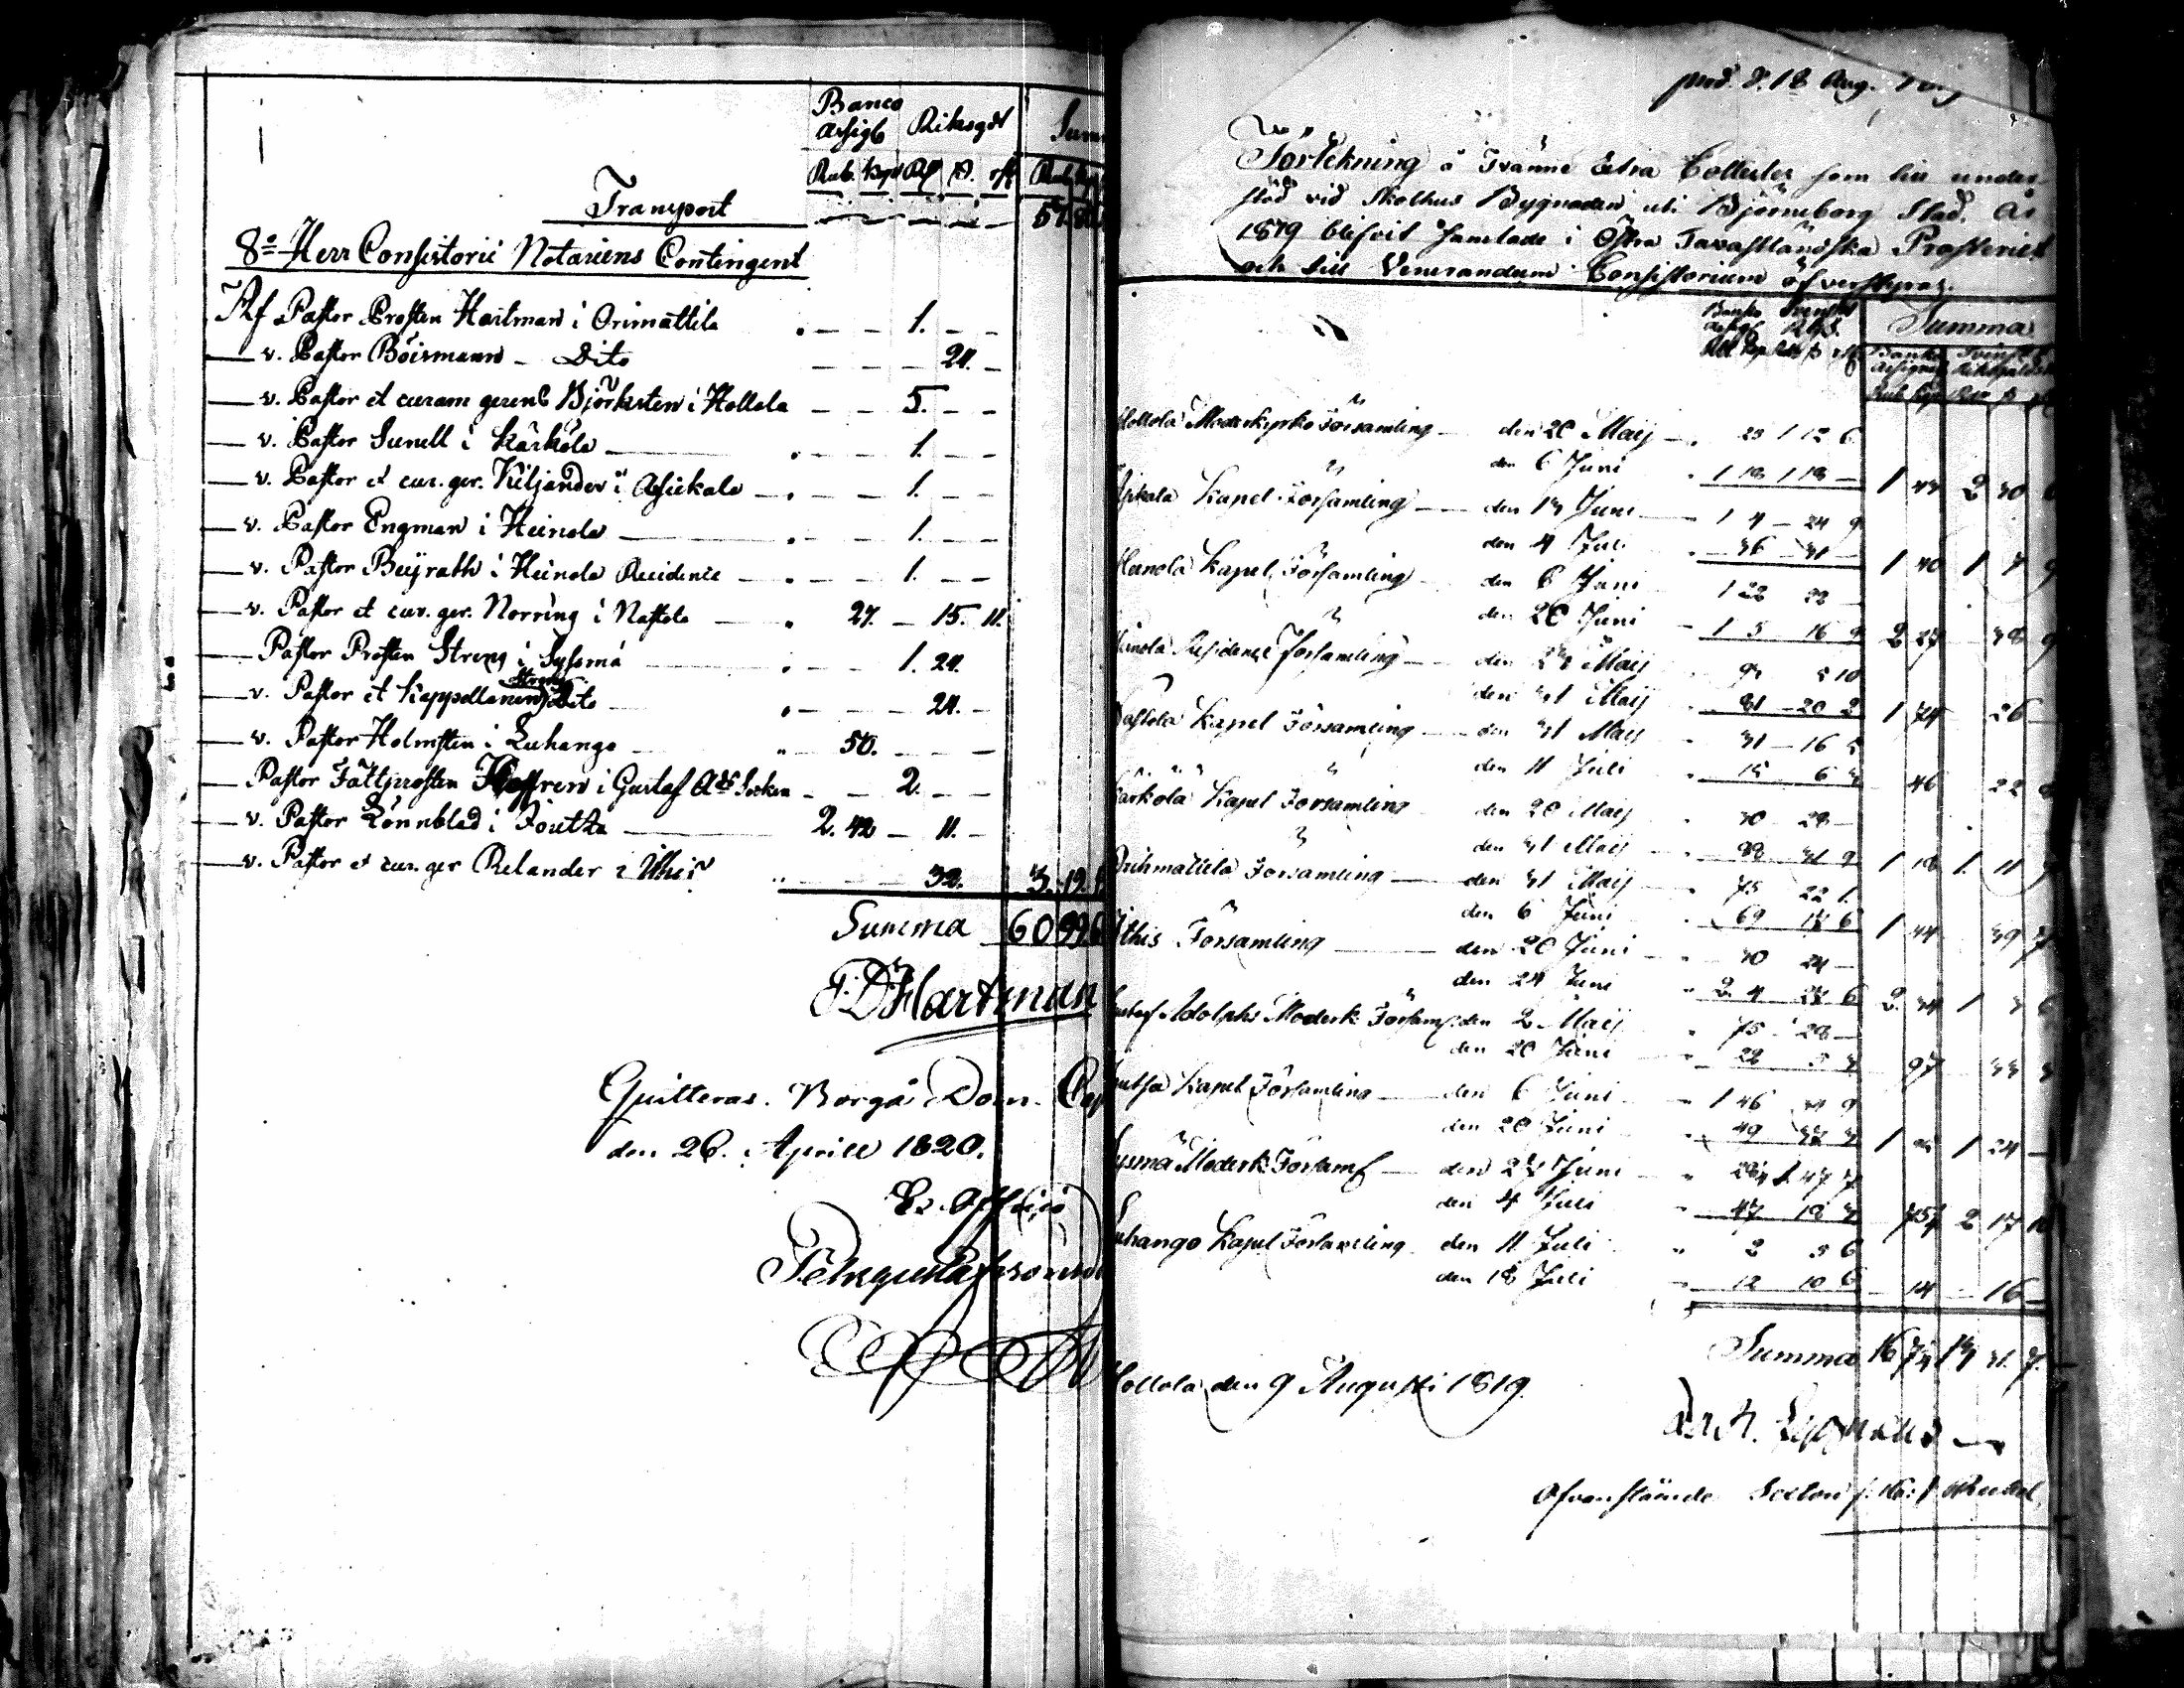 Banco
Assigt Riksgält Sum
Rub. Kop. Rd. s. rst. Rub. Kop
Transport 57.
8o Herr Consistorii Notariens Contingent
Af Pastor Prosten Hartman i Orimattila . — — 1. — —
— v. Pastor Böismann — Dito — — — — 24. —
— v. Pastor et curam gerens Björksten i Hollola — — 5. — —
— v. Pastor Sunell i Kärkölä . — — 1. — —
— v. Pastor et cur. ger. Kiljander i Asickala . — — 1. — —
— v. Pastor Engman i Heinola . — — 1. — —
— v. Pastor Beijrath i Heinola Residence . — — 1. — —
— v. Pastor et cur. ger. Norring i Nastola . 27. — 15. 11.
— Pastor Prosten Streng i Syssmä . — — 1. 24.
— v. Pastor et Kappellanen Streng Dito . — — — 24. —
— v. Pastor Holmsten i Luhango " — 50. — — —
— Pastor Fältprosten Hoffren i Gustaf Ads Socken — — 2. — —
— v. Pastor Lönnblad i Joutza 2. 42 — 11. —
— v. Pastor et cur. ger Relander i Ithis " — — — 32. 3. 19.
Summa 60 99
F: D Hartman
Quitteras. Borgå Dom-Cap
den 26. Aprill 1820.
Ex Officio
prod. d. 18 Aug.
Förtekning å Tvänne Extra Collecter som till under-
stöd vid Skolhus Bygnaden uti Björneborg Stad. År
1819 blifvit samlade i Östra Tavastländska Prosteriet
och till Venerandum Consistorium öfverskickas.
Banko Svenskt
Assigt R.G.S. Summa
Hollola Moderkyrko Församling — den 20 Maij — . 23 1 12 6
den 6 Juni . 1 18 1 18 — 1 43 2 30 6
Asikala Kapel Församling — den 13 Juni — 1 4 — 24 9
den 4 Juli . — 36 — 31 — 1 40 1 7 9
Heinola Kapel Församling den 6 Juni 1 22 22 —
den 20 Juni — 1 5 16 9 2 27 38 9
Heinola Residence Församling — den 23 Maij 93 5 10
den 31 Maij . 81 — 20 2 1 74 26 —
Nastola Kapel Församling — den 31 Maij . 31 — 16 5
den 11 Juli . 15 6 46 22
Kärkölä Kapel Församling den 20 Maij . 30 28 —
den 31 Maij . 88 31 9 1 18 1 11 9
Orihmattila Församling — den 31 Maij . 75 22 1.
den 6 Juni . 69 17 6 1 44 39 7
Ithis Församling — den 20 Juni . 30 24 —
den 24 Juni . 2 4 27 6 2 34 1 3 6
Gustaf Adolphs Moderk Församl: den 2 Maij . 75 28 —
den 20 Juni . 22 5 97 33
Joutsa Kapel Församling — den 6 Juni — 1 46 9
den 20 Juni . 49 1 95 1 24 —
Sysmä Moderk. Församl — den 27 Juni "
den 4 Juli " 47 18 2 17
Luhango Kapel Församling den 11 Juli " 2 5 6
den 18 Juli " 12 10 6 14 — 16 —
Summa 16 31. 7.
Hollola den 9 Augusti 1819.
Ofvanstående